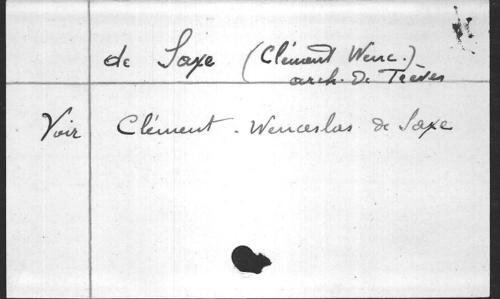 de Saxe (Clément Wenc.)
arch. de Trèves
Voir Clément-Wenceslas de Saxe